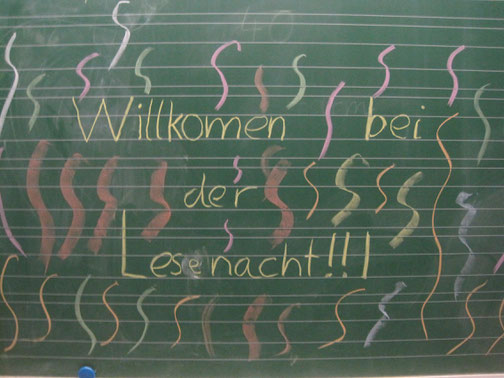 Willkomen bei
der
Lesenacht!!!